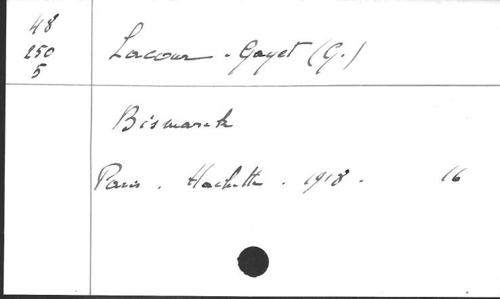 48
250
5
Lacour-Gayet (G.)
Bismarck
Paris. Hachette. 1918. 16